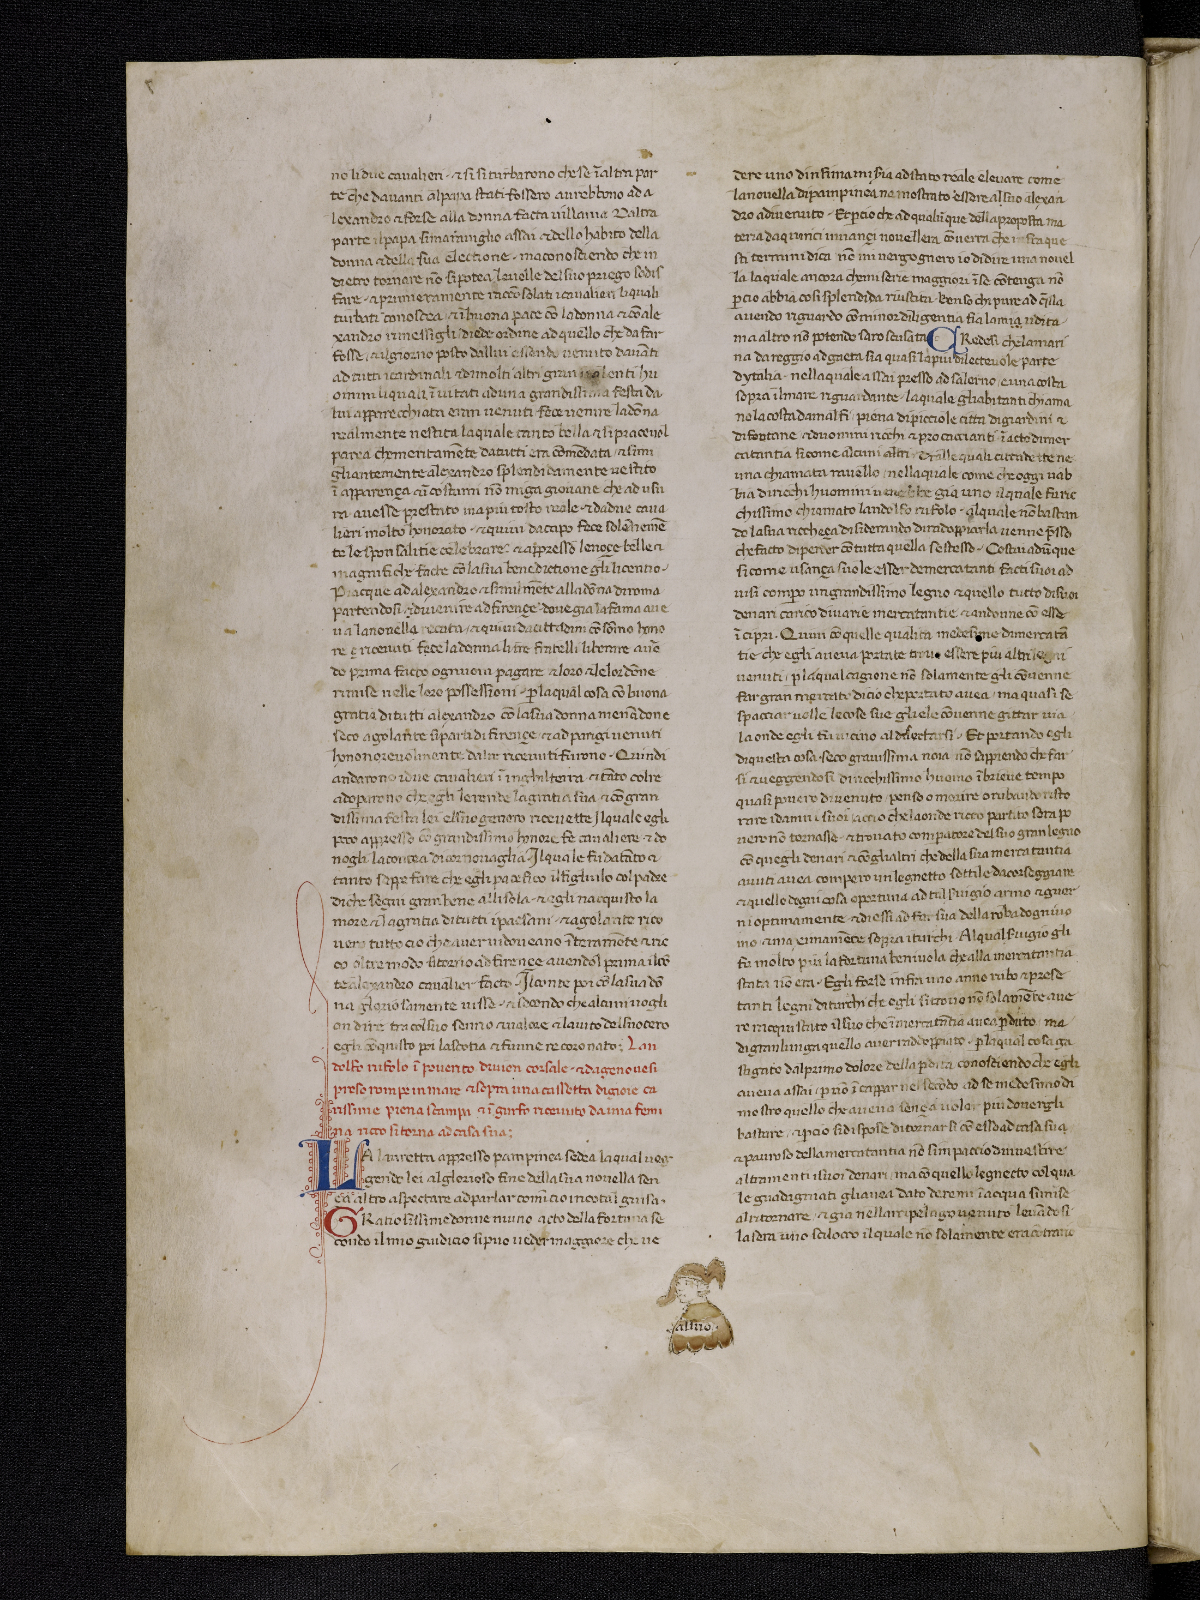 no li due cavalieri · et sì si turbarono che se ĩ altra par
te che davanti al papa stati fossero avrebbono ad a
lexandro et forse alla donna facta villania Daltra
parte il papa si maraviglio assai et dello habito della
donna et della sua electione · ma conoscendo che in
dietro tornare nõ si potea la volle del suo priego sodis
fare · et primieramente raccõsolati i cavalieri li quali
turbati conoscea et ĩ buona pace cõ la donna et cõ ale
xandro rimessigli · diede ordine ad quello che da far
fosse · et il giorno posto dallui essendo venuto davãti
ad tutti i cardinali et di molti altri gran valenti hu
omini li quali ĩvitati ad una grandissima festa da
lui apparecchiata eran venuti fece venire la dõna
realmente vestita la quale tanto bella et sì piacevol
parea che meritamẽte da tutti era cõmẽdata · et simi
gliantemente alexandro splendidamente vestito
ĩ apparença et ĩ costumi nõ miga giovane che ad usu
ra avesse prestato ma più tosto reale · et da due cava
lieri molto honorato · et quivi da capo fece solẽnemẽ
te le sponsalitie celebrare · et appresso le noçe belle et
magnifiche facte cõ la sua benedictione gli licentio ·
Piacque ad alexandro et similmẽte alla dõna di roma
partendosi di venire ad firençe · dove già la fama ave
va la novella recata · et quivi da cittadini cõ sõmo hono
re ricevuti fece la donna li tre fratelli liberare avẽ
do prima facto ogni uom pagare et loro et le lor dõne
rimise nelle loro possessioni · per la qual cosa cõ buona
gratia di tutti alexandro cõ la sua donna menãdone
seco agolante si parti di firençe · et ad parigi venuti
honorevolmente dal re ricevuti furono · Quindi
andarono i due cavalieri ĩ inghilterra et tãto col re
adoparono che egli le rende la gratia sua et cõ gran
dissima festa lei el suo genero ricevette Il quale egli
poco appresso cõ grandissimo honore fe cavaliere · et do
nogli la contea di cornovaglia · Il quale fu da tãto et
tanto seppe fare che egli pacefico il figliuolo col padre
di che segui gran bene all isola · et egli nacquisto la
more et la gratia di tutti i paesani · et agolante rico
vero tutto cio che aver vi doveano ĩteramẽte et ric
co oltre modo si torno ad firençe avendol prima il cõ
te alexandro cavalier facto · Il conte poi cõ la sua dõ
na gloriosamente visse · et secondo che alcuni vogli
on dire tra col suo senno et valore et laiuto del suocero
egli cõquisto poi la scotia et funne re coronato · Lan
dolfo rufolo ĩ povento divien corsale · et da genovesi
preso rompe in mare et sopra una cassetta di gioie ca
rissime piena scampa et ĩ gurfo ricevuto da una femi
na ricco si torna ad casa sua ·
LA lauretta appresso pampinea sedea la qual veg
gendo lei al glorioso fine della sua novella sen
ça altro aspectare ad parlar comicio in cotal guisa ·
GRatiosissime donne niuno acto della fortuna se
condo il mio giudicio si puo veder maggiore che ve
dere uno dinfima miseria ad stato reale elevare come
la novella di pampinea na mostrato essere al suo alexan
dro adivenuto · Et per cio che ad qualũque della proposta ma
teria da quinci innançi novellera cõverra che infra que
sti termini dica nõ mi vergognero io di dire una novel
la la quale ancora che miserie maggiori ĩ se cõtenga nõ
per cio abbia cosi splendida riuscita · Ben so che pure ad quella
avendo riguardo cõ minor diligentia fia la mia udita
ma altro nõ potendo saro scusata CRedesi che la mari
na da reggio ad gaeta sia quasi la più dilectevole parte
dytalia · nella quale assai presso ad salerno e una costa
sopra il mare riguardante · la quale gli abitanti chiama
no la costa damalfi · piena di picciole citta di giardini et
di fontane et duomini ricchi et procaccianti ĩ acto di mer
catantia si come alcuni altri · Tralle quali cittadette ne
una chiamata ravello · nella quale come che oggi vab
bia di ricchi huomini ve nebbe già uno il quale fu ric
chissimo chiamato landolfo rufolo · al quale nõ bastan
do la sua riccheça disiderando di radoppiarla venne presso
che facto di perder cõ tutta quella se stesso · Costui adũque
si come usança suole esser de mercatanti facti suoi ad
visi compero un grandissimo legno et quello tutto di suoi
denari carico di varie mercatantie et andonne cõ esse
ĩ cipri · Quivi cõ quelle qualità medesime di mercatã
tie che egli aveva portate trovo essere più altri legni
venuti · per la qual cagione nõ solamente gli cõvenne
far gran mercato di cio che portato avea · ma quasi se
spacciar volle le cose sue gliele cõvenne gittar via
la onde egli fu vicino al disertarsi · Et portando egli
di questa cosa seco gravissima noia nõ sappiendo che far
si et veggendosi di ricchissimo huomo ĩ brieve tempo
quasi povero divenuto · penso o morire o rubando risto
rare i danni suoi accio che la onde ricco partito sera po
vero nõ tornasse · et trovato comperatore del suo gran legno
cõ quegli denari et cõ gli altri che della sua mercatantia
avuti avea compero un legnetto sottile da corseggiare
et quello dogni cosa oportuna ad tal servigio armo et guer
ni optimamente · et diessi ad far sua della roba dogni uo
mo et maximamẽte sopra i turchi · Al qual servigio gli
fu molto più la fortuna benivola che alla mercatantia
stata nõ era · Egli forse infra uno anno rubo et prese
tanti legni di turchi che egli si trovo nõ solamẽte ave
re racquistato il suo che ĩ mercatãtia avea perduto · ma
di gran lunga quello aver raddoppiato · per la qual cosa ga
stigato dal primo dolore della perdita conoscendo che egli
aveva assai · per nõ ĩcappar nel secõdo ad se medesimo di
mostro quello che aveva sença voler più dovergli
bastare · et per cio si dispose di tornarsi cõ esso ad casa sua
et pauroso della mercatantia nõ simpaccio dinvestire
altramenti i suoi denari · ma cõ quello legnetto col qua
le guadagnati gli avea dato de remi ĩ acqua si mise
al ritornare · et già nell arcipelago venuto levãdosi
la sera uno scilocco il quale nõ solamente era cõtrario
al suo